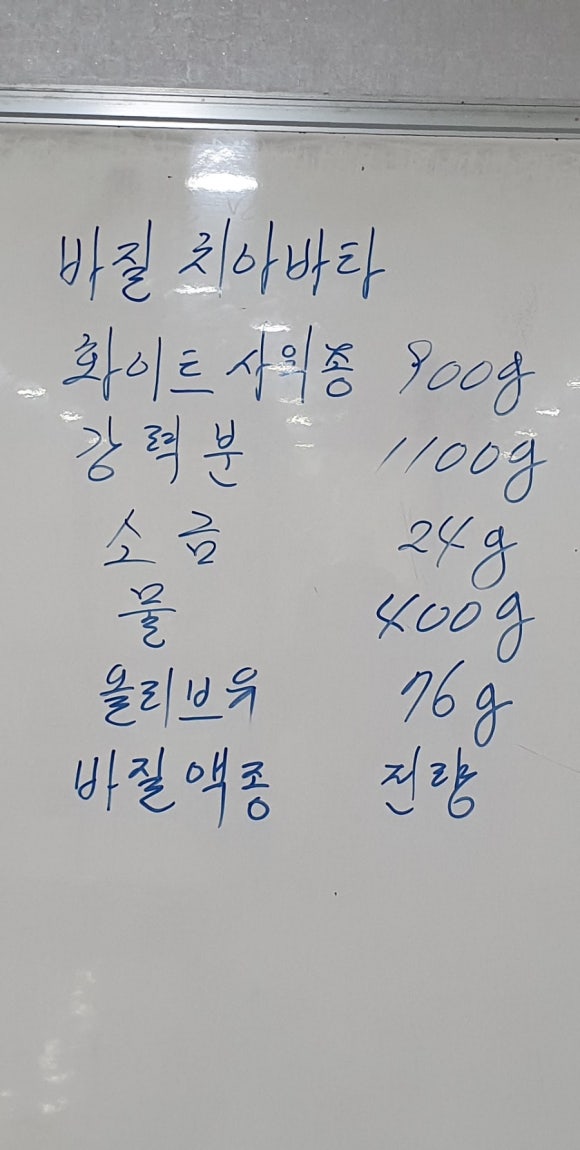 바질 치아바타
화이트사워종 900g
강력분 1100g
소금 24g
물 400g
올리브유 76g
바질액종 전량